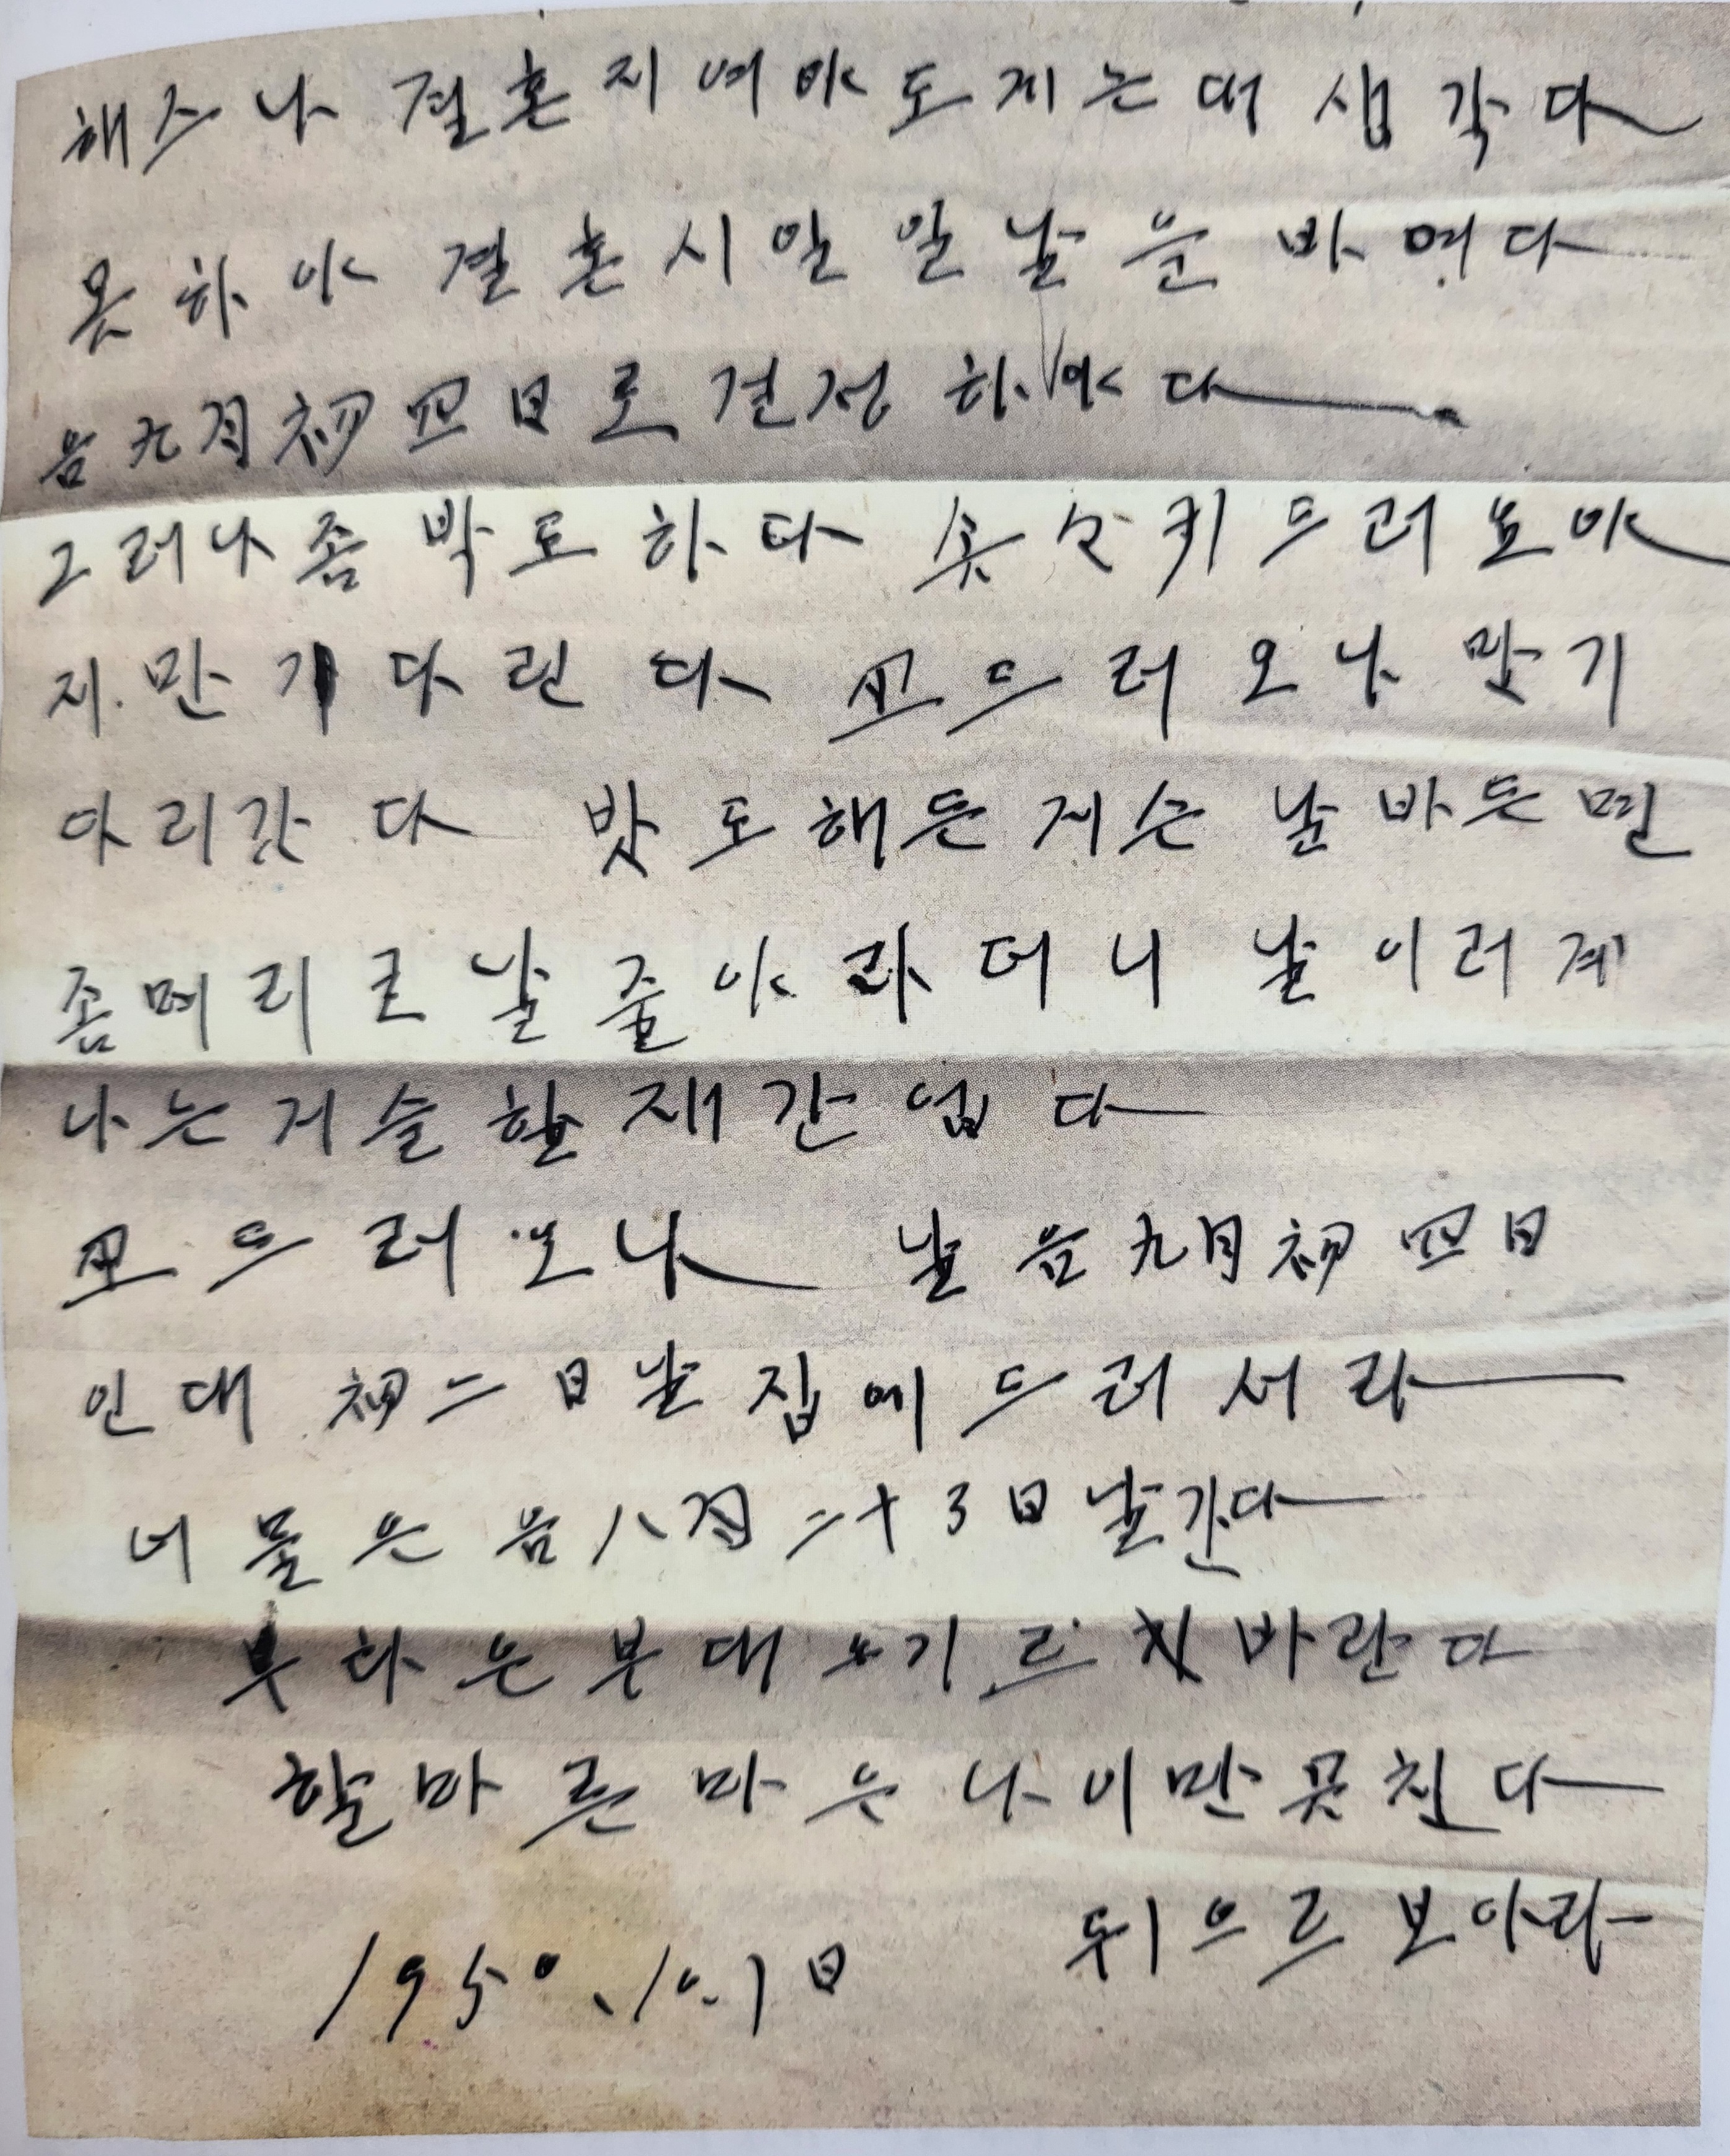 해스나 결혼지며야 도게는대 생각다
못하야 결혼시일 일날을 바여다
음九月初四日로 결정 하야다
그러나 좀 박토하다 드러
지만 기다린다 드러오나 만기
다리갓다 밧도 해든게슨 날바든면
좀메리로 날줄아라더니 날이러게
나는거슬 할재간업다
꼬드러오나 날음九月初四日
인대 初二日날 집에 드러서라
너물은 음八月二十3日날간다
못다은 부대 바란다
할마른마으나 이만 끗친다
뒤으르보아라
1950.10.1日